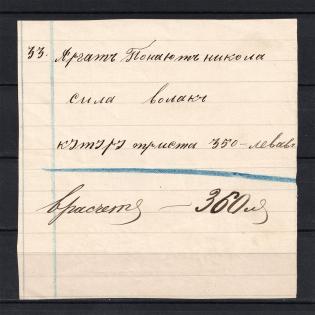 33. Аргатъ Понаютъ никола
сила волакъ
триста 350 - левавъ
врасчетъ — 360 лв